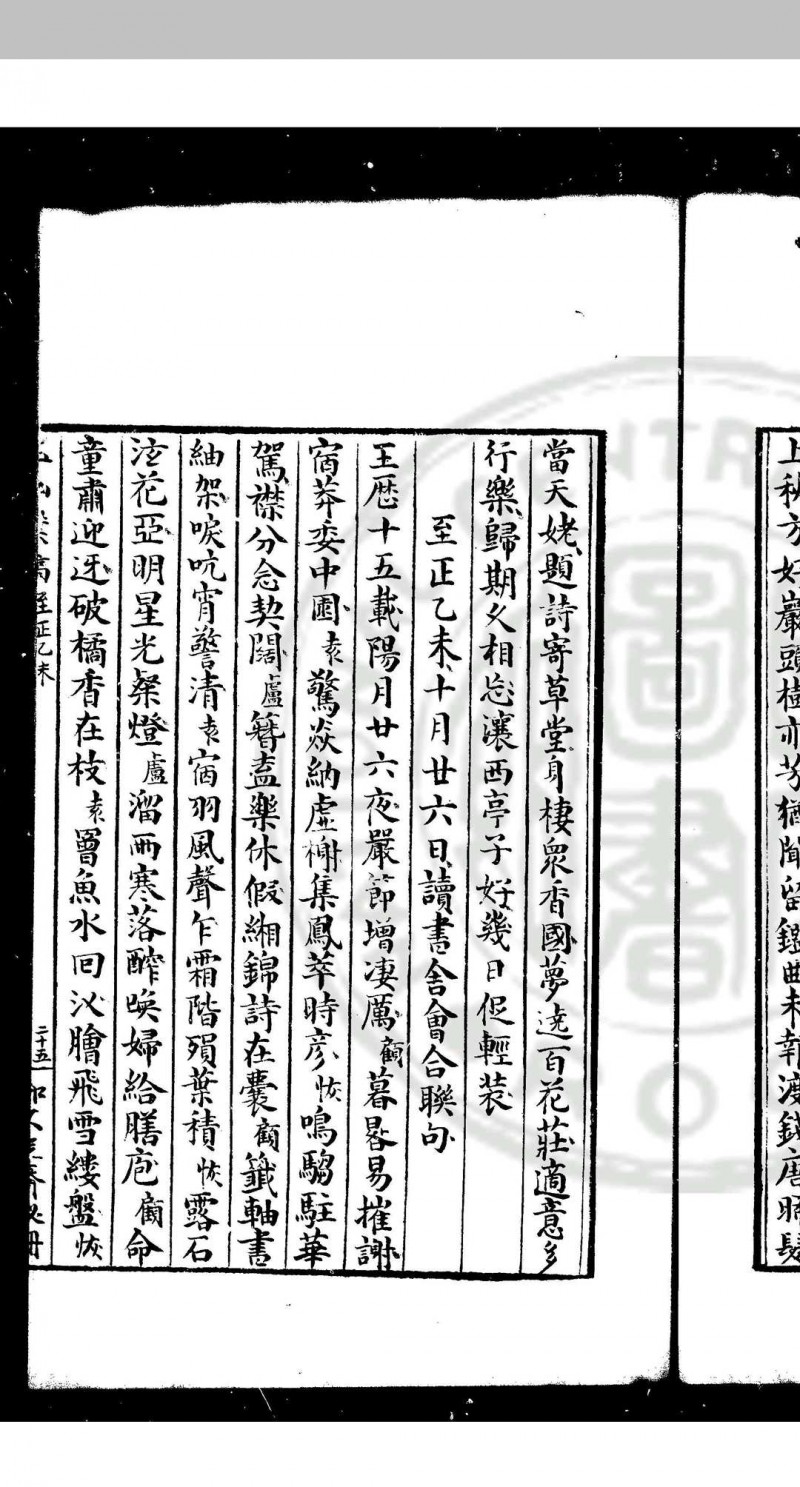 上秋方好巖頭樹亦芳猶聞留鎰曲未報渡錢唐晞髮
當天姥題詩寄草堂身棲眾香國夢遶百花莊適意多
行樂歸期久相忘瀼西亭子好幾日促輕装
至正乙未十月廿六日讀書舍會合聯句
王曆十五載陽月廿六夜嚴節增凄厲顧暮晷易摧謝
宿莽委中園袁驚焱納虛榭集鳳萃時彦恢鳴騶駐華
駕襟分念契闊盧簪盍樂休假緗錦詩在囊顧籤軸書
紬架唳吭宵警清袁宿羽風聲乍霜階殞葉積恢露石
泫花亞明星光粲燈盧溜雨寒落醡喚婦給膳庖顧命
童肅迎迓破橘香在枝袁罾魚水回汊膾飛雪縷盤恢
至正乙未
二十五